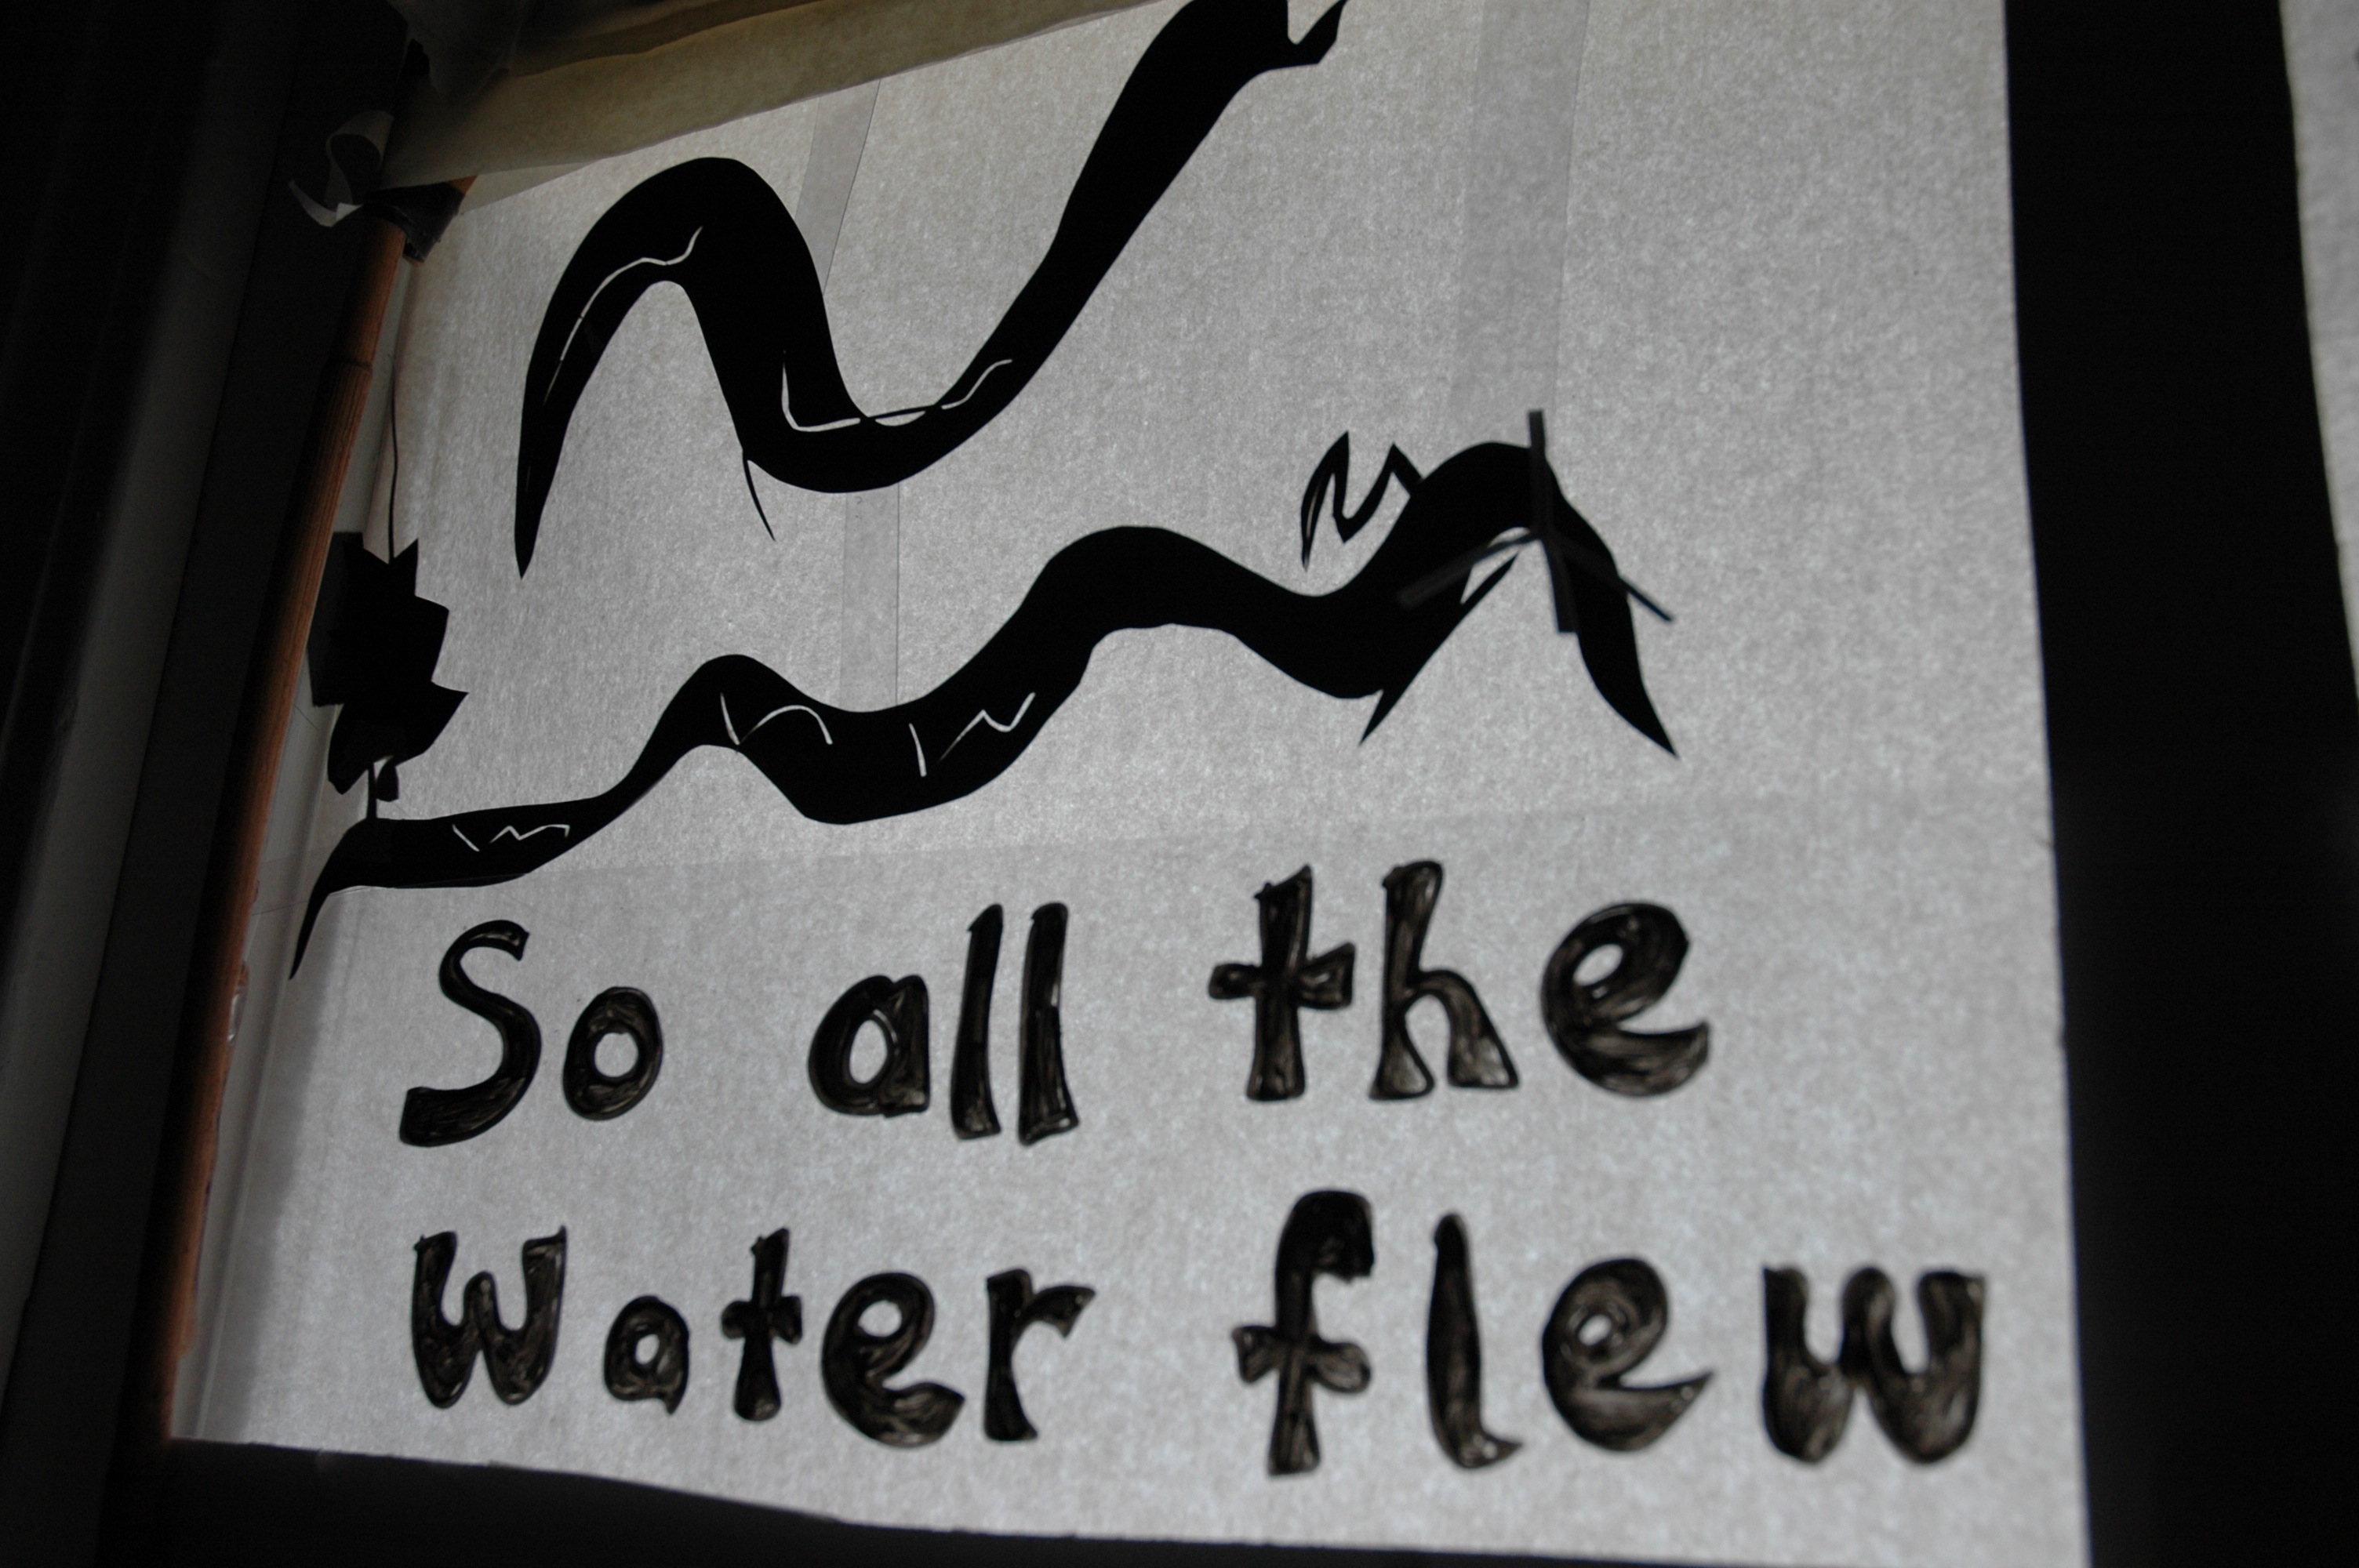 So all the
Water flew